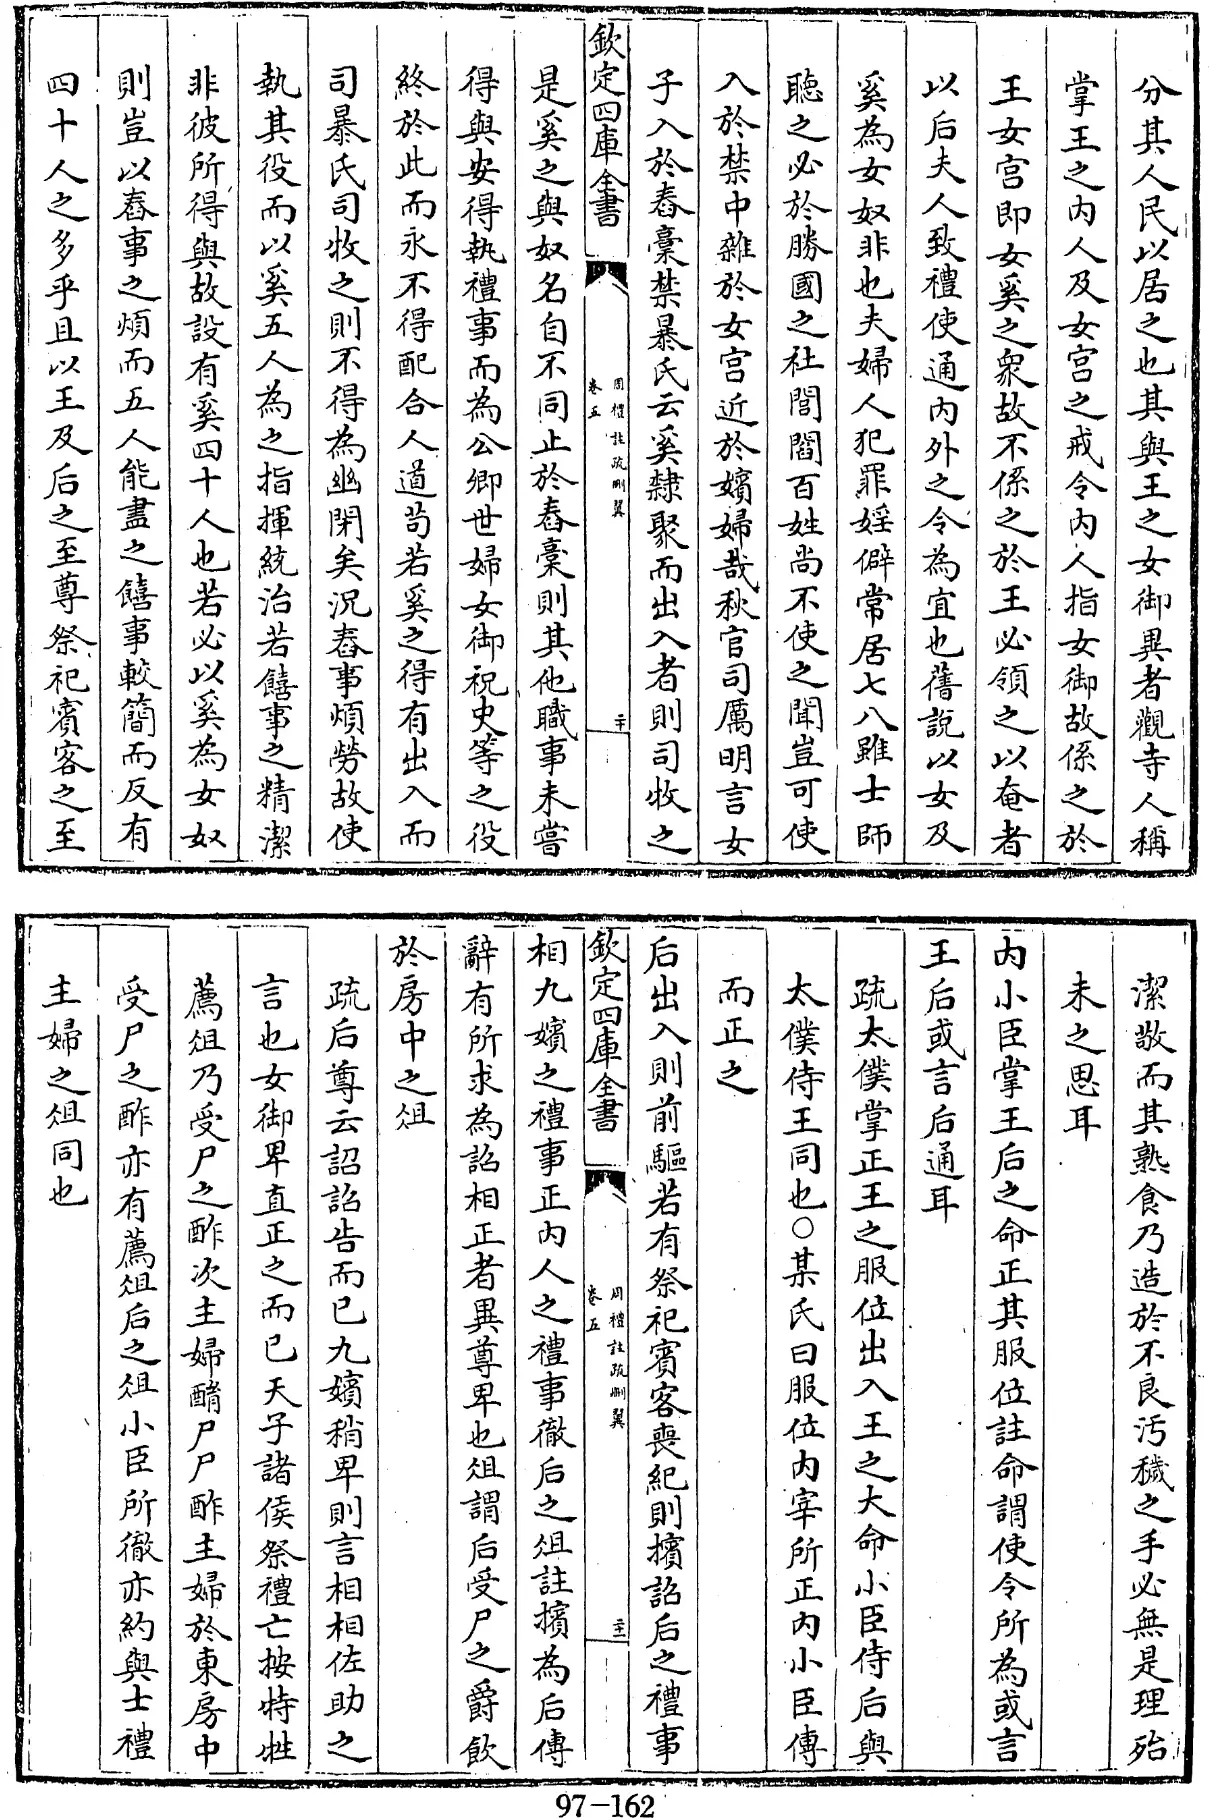 分其人民以居之也其與王之女御異者觀寺人稱
掌王之内人及女宫之戒令内人指女御故係之於
王女宫即女奚之衆故不係之於王必領之以奄者
以后夫人致禮使通内外之令為宜也舊説以女及
奚為女奴非也夫婦人犯罪婬僻常居七八雖士師
聽之必於勝國之社閭閻百姓尚不使之聞豈可使
入於禁中雜於女宫近於嬪婦哉秋官司厲明言女
子入於舂槀禁暴氏云奚隸聚而出入者則司牧之
欽定四庫全書
周禮註疏刪翼
卷五
二十
是奚之與奴名自不同止於舂槀則其他職事未嘗
得與安得執禮事而為公卿世婦女御祝史等之役
終於此而永不得配合人道苟若奚之得有出入而
司暴氏司牧之則不得為幽閉矣況舂事煩勞故使
執其役而以奚五人為之指揮統治若饎事之精潔
非彼所得與故設有奚四十人也若必以奚為女奴
則豈以舂事之煩而五人能盡之饎事較簡而反有
四十人之多乎且以王及后之至尊祭祀賓客之至
潔敬而其熟食乃造於不良汚穢之手必無是理殆
未之思耳
内小臣掌王后之命正其服位註命謂使令所為或言
王后或言后通耳
疏太僕掌正王之服位出入王之大命小臣侍后與
太僕侍王同也○某氏曰服位内宰所正内小臣傳
而正之
后出入則前驅若有祭祀賓客喪紀則擯詔后之禮事
欽定四庫全書
周禮註疏刪翼
卷五
二十一
相九嬪之禮事正内人之禮事徹后之俎註擯為后傳
辭有所求為詔相正者異尊卑也俎謂后受尸之爵飲
於房中之俎
疏后尊云詔詔告而已九嬪稍卑則言相相佐助之
言也女御卑直正之而已天子諸侯祭禮亡按特牲
薦俎乃受尸之酢次主婦酳尸尸酢主婦於東房中
受尸之酢亦有薦俎后之俎小臣所徹亦約與士禮
主婦之俎同也
97-162